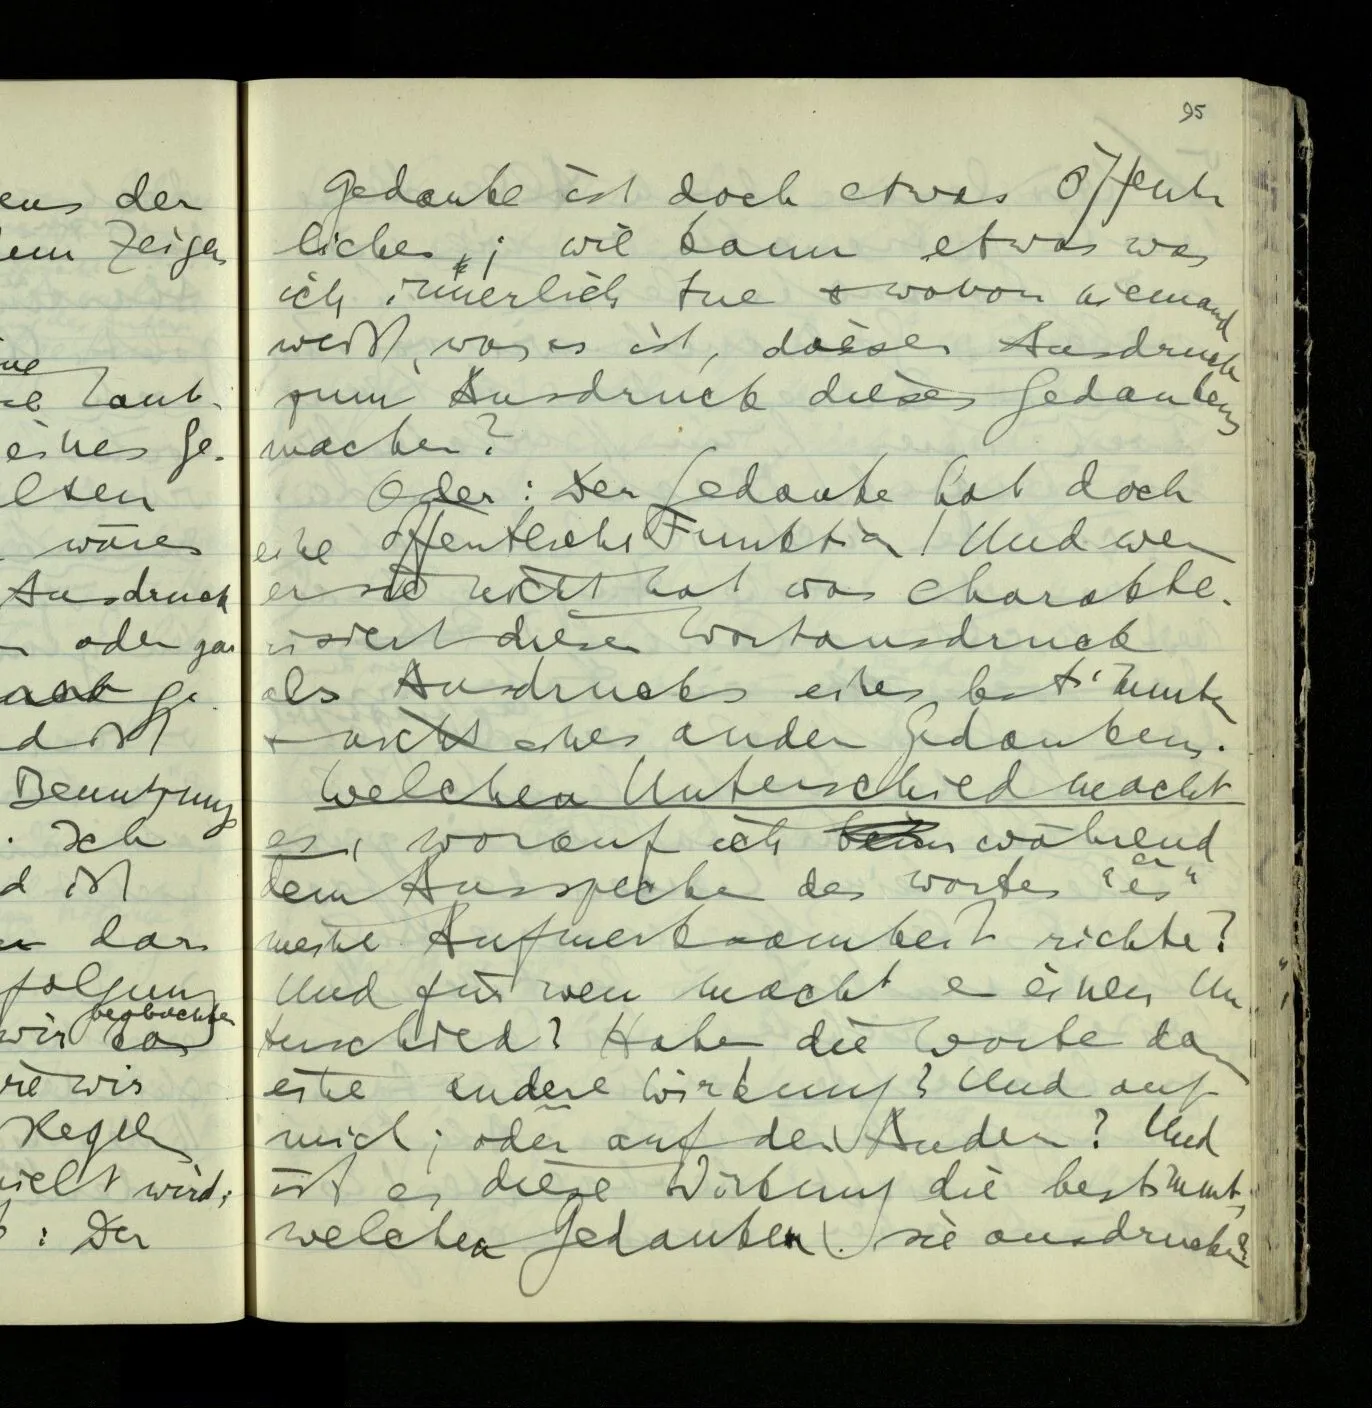 ens der
dem Zeigen
ine
Laut-
eines Ge-
wäre
Ausdruck
oder gar
Ge
d ist
Benutzung
. Ich
d ist
das
folgung
beobachten
wir das
wie wir
Regeln
spielt wird;
: Der
95
Gedanke ist doch etwas Öffent-
liches; wie kann etwas was
ich innerlich tue & wovon niemand
weiß, was es ist, diesen Ausdruck
zum Ausdruck dieses Gedankens
machen?
Oder: Der Gedanke hat doch
eine öffentliche Funktion! Und wenn
er sie nicht hat was charakte-
risiert diesen Wortausdruck
als Ausdrucks eines bestimmten
& nicht eines andern Gedankens.
Welchen Unterschied macht
es, worauf ich beim während
dem Ausspechen des Wortes "er"
meine Aufmerksamkeit richte?
Und für wen macht er einen Un-
terschied? Haben die Worte dann
eine andere Wirkung? Und auf
mich; oder auf den Andern? Und
ist es diese Wirkung die bestimmt,
welchen Gedanken sie ausdrucken?